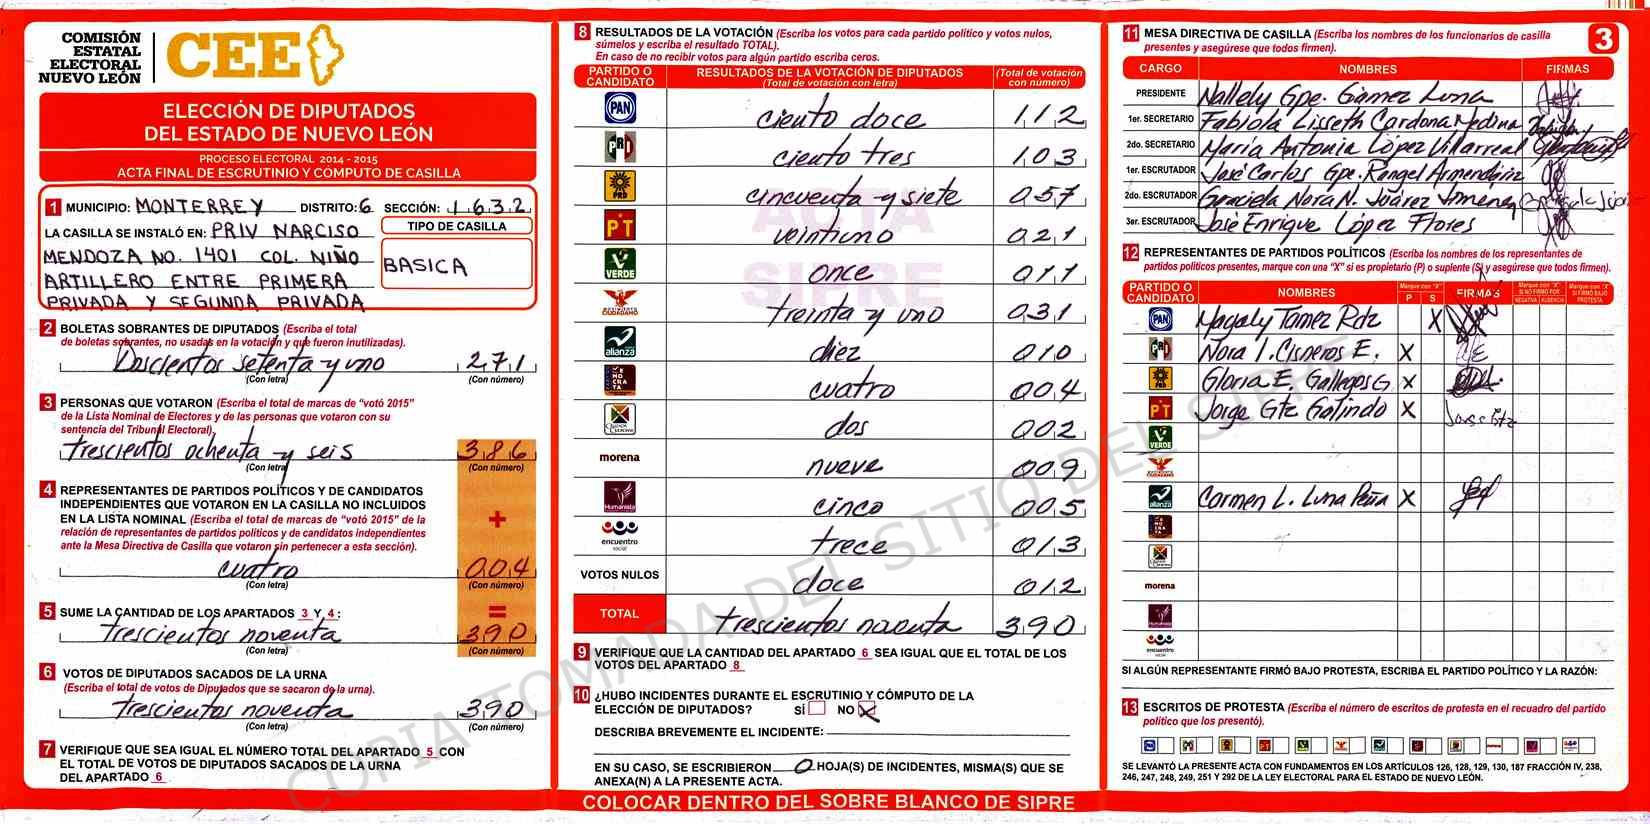 COMISIÓN
ESTATAL
ELECTORAL
NUEVO LEÓN
CEE
ELECCIÓN DE DIPUTADOS
DEL ESTADO DE NUEVO LEÓN
PROCESO ELECTORAL 2014 - 2015
ACTA FINAL DE ESCRUTINIO Y CÓMPUTO DE CASILLA
1 MUNICIPIO: MONTERREY DISTRITO: 6 SECCIÓN: 1632
LA CASILLA SE INSTALÓ EN: PRIV NARCISO
MENDOZA NO. 1401 COL. NIÑO
ARTILLERO ENTRE PRIMERA
PRIVADA Y SEGUNDA PRIVADA
TIPO DE CASILLA
BASICA
2 BOLETAS SOBRANTES DE DIPUTADOS (Escriba el total
de boletas sobrantes, no usadas en la votación y que fueron inutilizadas).
Doscientos setenta y uno 271
(Con letra) (Con número)
3 PERSONAS QUE VOTARON (Escriba el total de marcas de “votó 2015”
de la Lista Nominal de Electores y de las personas que votaron con su
sentencia del Tribunal Electoral).
trescientos ochenta y seis 386
(Con letra) (Con número)
4 REPRESENTANTES DE PARTIDOS POLÍTICOS Y DE CANDIDATOS
INDEPENDIENTES QUE VOTARON EN LA CASILLA NO INCLUIDOS
EN LA LISTA NOMINAL (Escriba el total de marcas de “votó 2015” de la
relación de representantes de partidos políticos y de candidatos independientes
ante la Mesa Directiva de Casilla que votaron sin pertenecer a esta sección).
+
cuatro 004
(Con letra) (Con número)
5 SUME LA CANTIDAD DE LOS APARTADOS 3 Y 4:
=
trescientos noventa 390
(Con letra) (Con número)
6 VOTOS DE DIPUTADOS SACADOS DE LA URNA
(Escriba el total de votos de Diputados que se sacaron de la urna).
trescientos noventa 390
(Con letra) (Con número)
7 VERIFIQUE QUE SEA IGUAL EL NÚMERO TOTAL DEL APARTADO 5 CON
EL TOTAL DE VOTOS DE DIPUTADOS SACADOS DE LA URNA
DEL APARTADO 6
8 RESULTADOS DE LA VOTACIÓN (Escriba los votos para cada partido político y votos nulos,
súmelos y escriba el resultado TOTAL).
En caso de no recibir votos para algún partido escriba ceros.
PARTIDO O CANDIDATO RESULTADOS DE LA VOTACIÓN DE DIPUTADOS (Total de votación con letra) (Total de votación con número)
PAN ciento doce 112
PRD ciento tres 103
PRD cincuenta y siete 057
PT veintiuno 021
VERDE once 011
MOVIMIENTO CIUDADANO treinta y uno 031
alianza diez 010
DEMOCRATA cuatro 004
CRUZADA CIUDADANA dos 002
morena nueve 009
Humanista cinco 005
encuentro social trece 013
VOTOS NULOS doce 012
TOTAL trescientos noventa 390
ACTA
SIPRE
9 VERIFIQUE QUE LA CANTIDAD DEL APARTADO 6 SEA IGUAL QUE EL TOTAL DE LOS
VOTOS DEL APARTADO 8
10 ¿HUBO INCIDENTES DURANTE EL ESCRUTINIO Y CÓMPUTO DE LA
ELECCIÓN DE DIPUTADOS? SÍ NO X
DESCRIBA BREVEMENTE EL INCIDENTE:
EN SU CASO, SE ESCRIBIERON 0 HOJA(S) DE INCIDENTES, MISMA(S) QUE SE
ANEXA(N) A LA PRESENTE ACTA.
COLOCAR DENTRO DEL SOBRE BLANCO DE SIPRE
11 MESA DIRECTIVA DE CASILLA (Escriba los nombres de los funcionarios de casilla
presentes y asegúrese que todos firmen).
3
CARGO NOMBRES FIRMAS
PRESIDENTE Nallely Gpe. Gámez Luna
1er. SECRETARIO Fabiola Lisseth Cardona Medina
2do. SECRETARIO Maria Antonia López Villarreal
1er. ESCRUTADOR José Carlos Gpe. Rangel Armendáriz
2do. ESCRUTADOR Graciela Nora N. Juárez Jimenez
3er. ESCRUTADOR José Enrique López Flores
12 REPRESENTANTES DE PARTIDOS POLÍTICOS (Escriba los nombres de los representantes de
partidos políticos presentes, marque con una “X” si es propietario (P) o suplente (S) y asegúrese que todos firmen).
PARTIDO O CANDIDATO NOMBRES Marque con “X” P S FIRMAS Marque con “X” SI NO FIRMÓ POR NEGATIVA AUSENCIA Marque con “X” SI FIRMÓ BAJO PROTESTA
PAN Magaly Tamez Rdz X
PRD Nora I. Cisneros E. X
PRD Gloria E. Gallegos G X
PT Jorge Gtz Galindo X Jorge Gtz
VERDE
MOVIMIENTO CIUDADANO
alianza Carmen L. Luna Peña X
morena
Humanista
encuentro social
SI ALGÚN REPRESENTANTE FIRMÓ BAJO PROTESTA, ESCRIBA EL PARTIDO POLÍTICO Y LA RAZÓN:
13 ESCRITOS DE PROTESTA (Escriba el número de escritos de protesta en el recuadro del partido
político que los presentó).
SE LEVANTÓ LA PRESENTE ACTA CON FUNDAMENTOS EN LOS ARTÍCULOS 126, 128, 129, 130, 187 FRACCIÓN IV, 238,
246, 247, 248, 249, 251 Y 292 DE LA LEY ELECTORAL PARA EL ESTADO DE NUEVO LEÓN.
COPIA TOMADA DEL SITIO DEL SIPRE